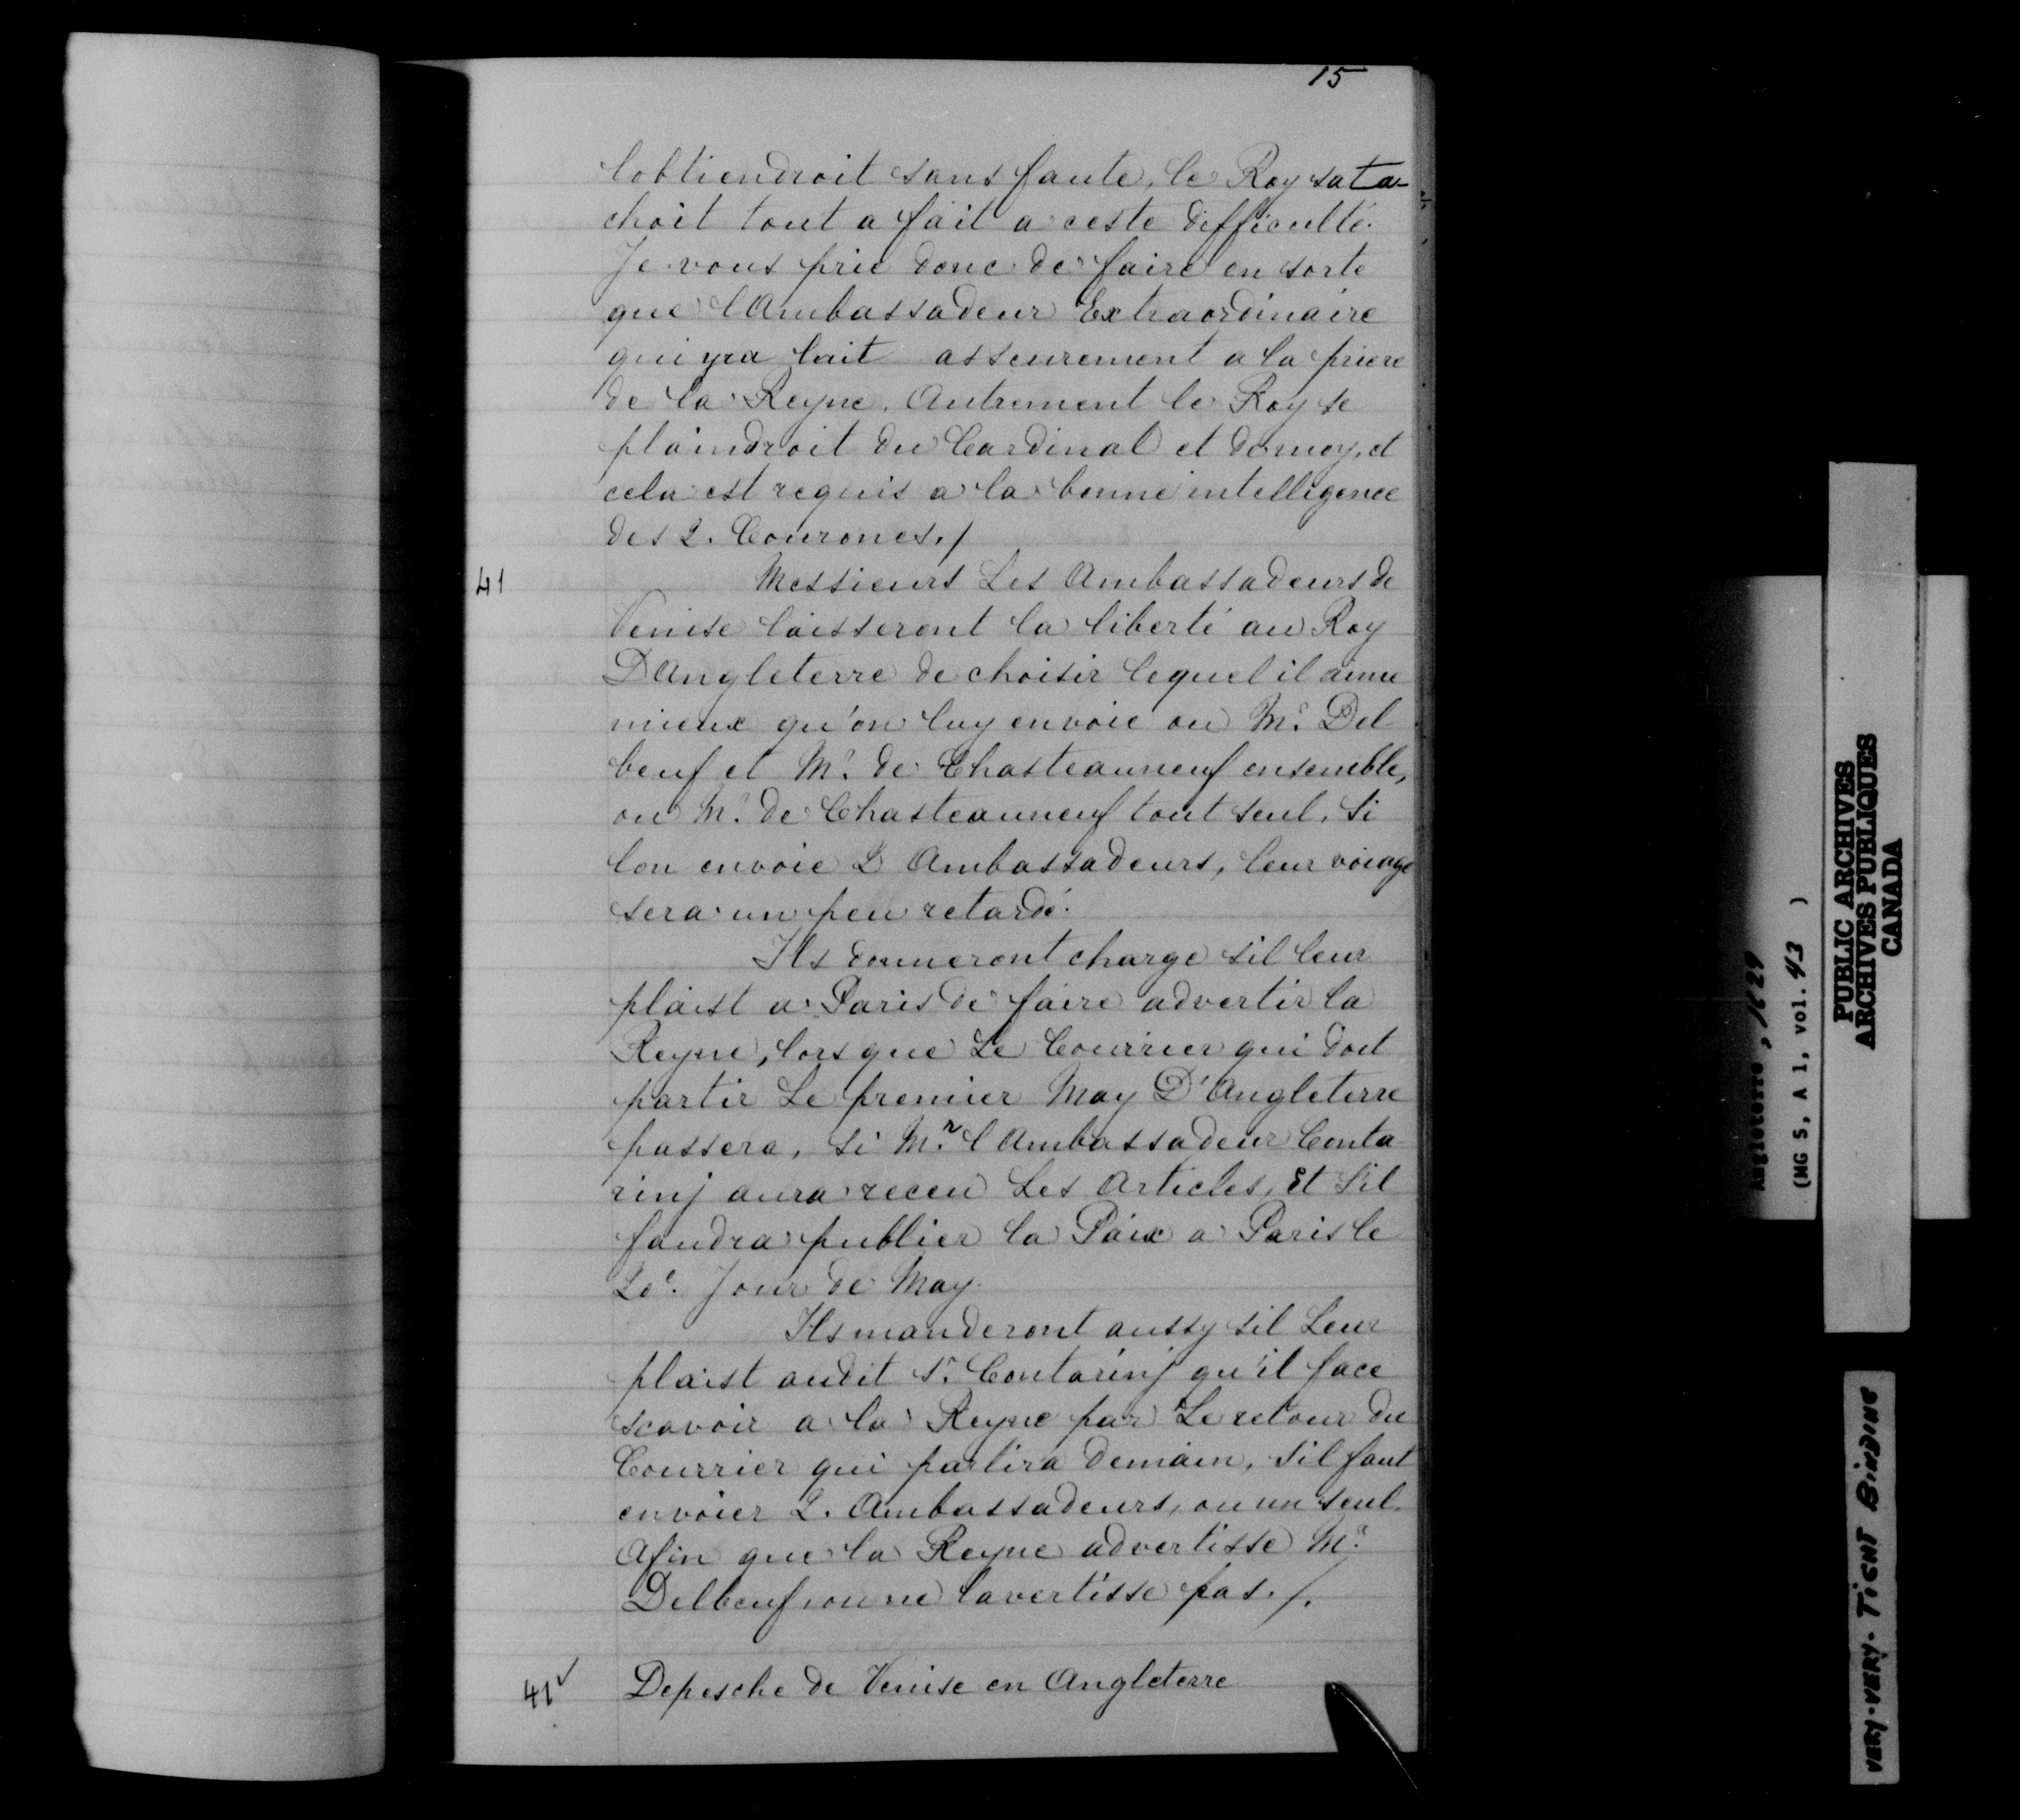 15
lobtiendroit sans faute, le Roy sata-
choit tout a fait a ceste difficulté.
Je vous prie donc de faire en sorte
que lAmbassadeur Extraordinaire
qui yra lait asseurement a la priere
de la Reyne. Autrement le Roy se
plaindroit du Cardinal et de moy, et
cela est requis a la bonne intelligence
des 2. Courones./
41
Messieurs Les Ambassadeurs de
Venise laisseront la liberté au Roy
DAngleterre de choisir lequel il aime
mieux qu'on luy envoie ou Mr. Del-
beuf et Mr. de Chasteauneuf ensemble,
ou Mr. de Chasteauneuf tout seul. Si
lon envoie 2 Ambassadeurs, leur voiage
sera un peu retardé.
Ils donneront charge sil leur
plaist a Paris de faire advertir la
Reyne, lors que Le Courrier qui doit
partir Le premier May D'Angleterre
passera, Si Mr. l Ambassadeur Conta
rinj aura receu Les Articles, Et S'il
faudra publier la Paix a Paris le
20e. Jour de May.
Ils manderont aussy sil Leur
plaist audit Sr. Contarinj qu'il face
scavoir a la Reyne par Le retour du
Courrier qui partira demain, S'il faut
envoier 2. Ambassadeurs, ou un seul.
Afin que la Reyne advertisse Mr.
Delbeuf, ou ne lavertisse pas./.
41v
Depesche de Venise en Angleterre
Angleterre, 1629
(MG 5, A 1, vol. 43 )
PUBLIC ARCHIVES
ARCHIVES PUBLIQUES
CANADA
VERY-VERY. TIGHT BINDING